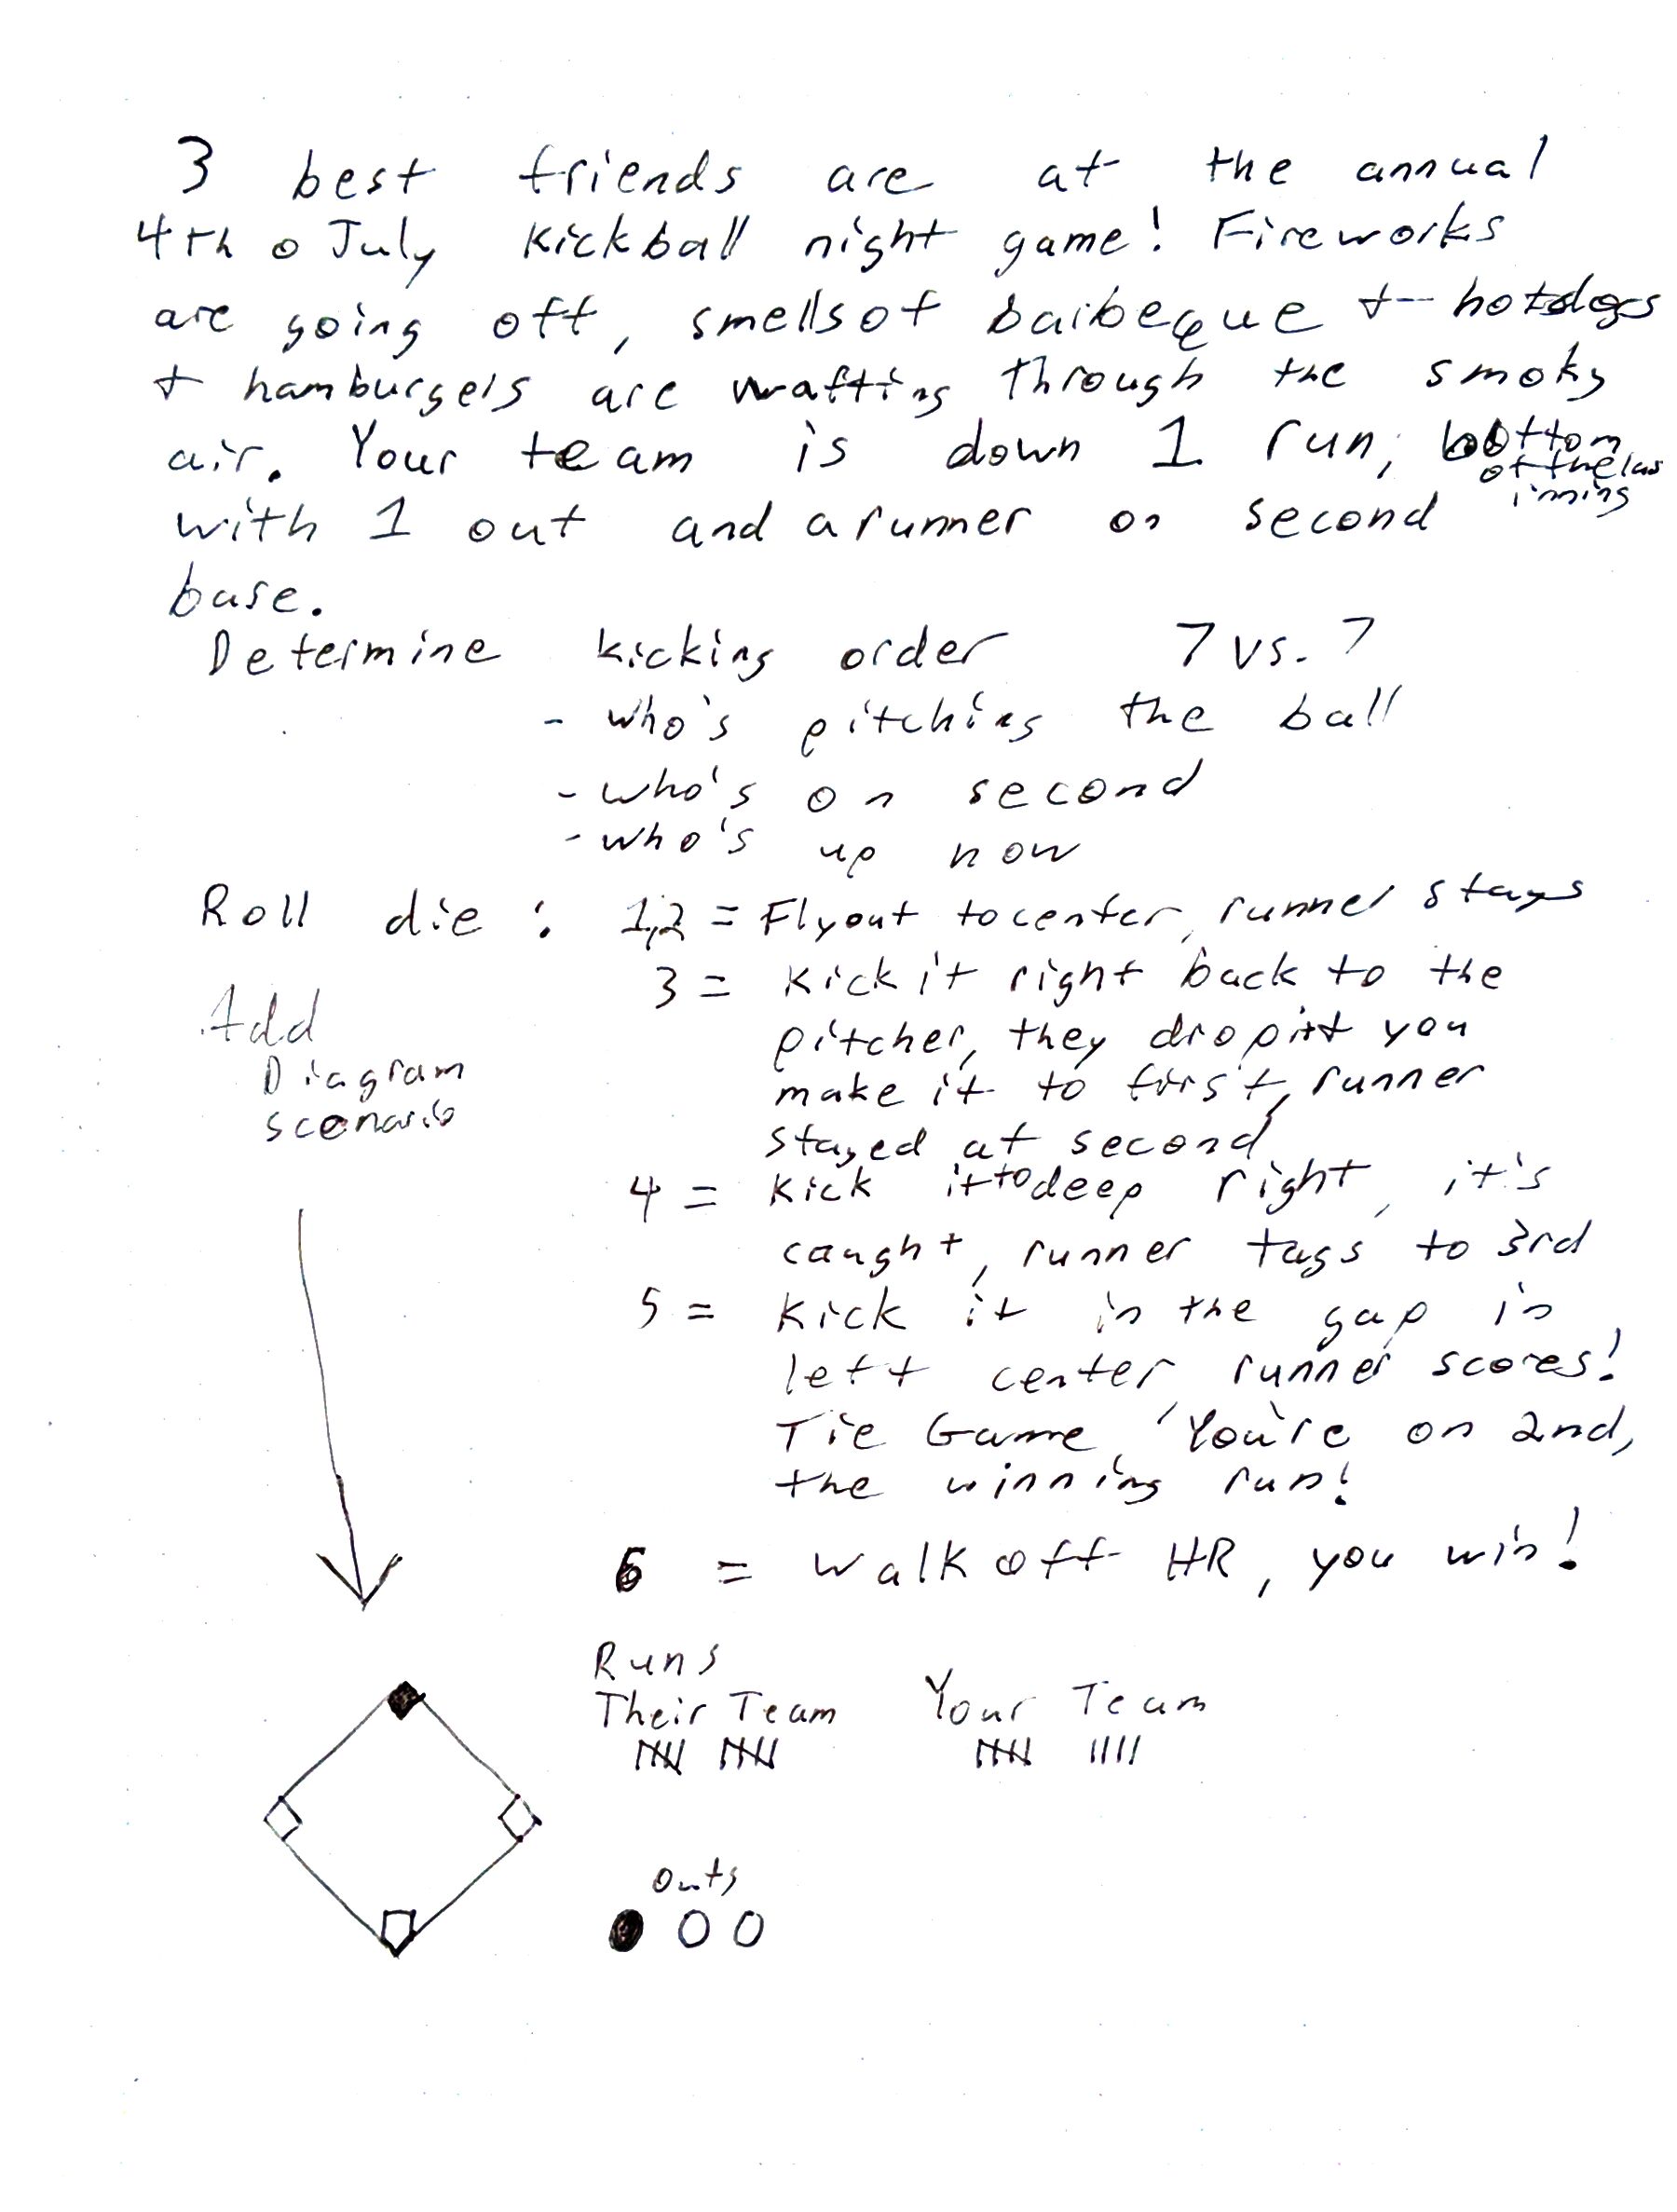 3 best friends are at the annual
4th o July kickball night game! Fireworks
are going off, smells of barbeque + hotdogs
+ hamburgers are wafting through the smoky
air. Your team is down 1 run, bottom
of the las
inning
with 1 out and a runner on second
base.
Determine kicking order 7 vs. 7
- who's pitching the ball
- who's on second
- who's up now
Roll die : 1,2 = Flyout to center, runner stays
3 = Kick it right back to the
pitcher, they drop it you
make it to first, runner
stayed at second
4 = Kick it to deep right, it's
caught, runner tags to 3rd
5 = Kick it in the gap in
left center, runner scores!
Tie Game, You're on 2nd,
the winning run!
6 = walk off HR, you win!
Add
Diagram
scenario
Runs
Their Team Your Team
outs